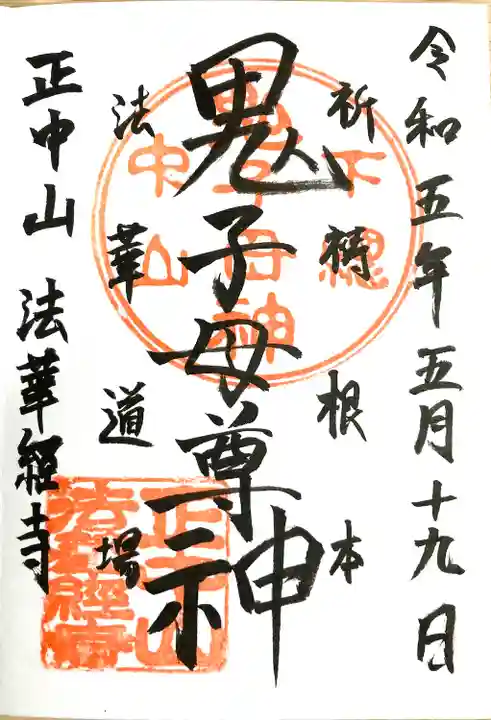 令和五年五月十九日
祈祷根本
鬼子母尊神
法華道場
正中山 法華経寺
下總
鬼子母神
中山
正中山
法華經寺